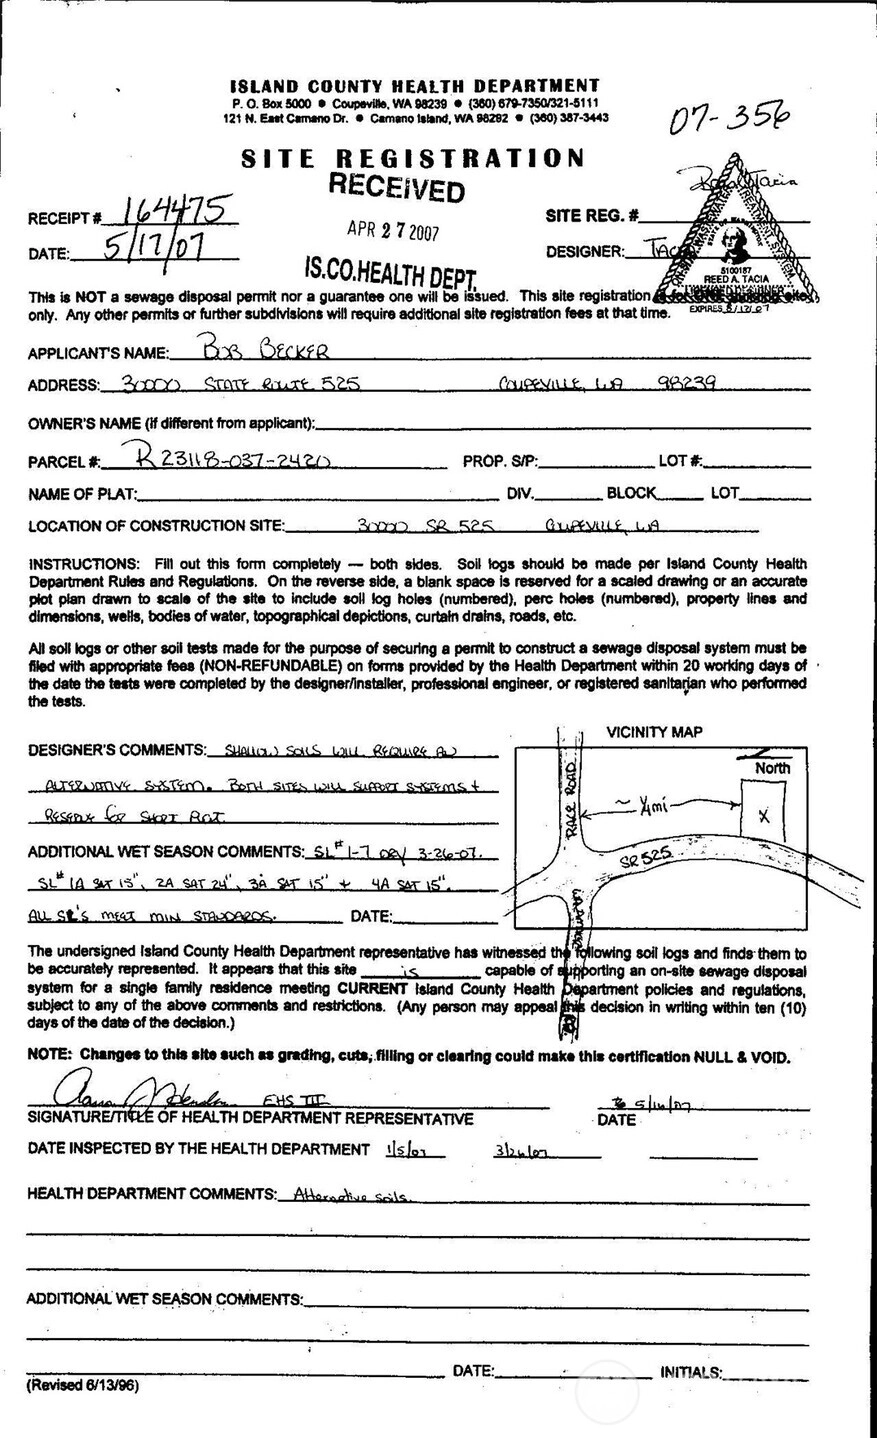 ISLAND COUNTY HEALTH DEPARTMENT
P. O. Box 5000 ● Coupeville, WA 98239 ● (360) 679-7350/321-5111
121 N. East Camano Dr. ● Camano Island, WA 98292 ● (360) 387-3443
07-356
SITE REGISTRATION
RECEIVED
APR 27 2007
IS.CO.HEALTH DEPT.
RECEIPT # 164475
SITE REG. #
DATE: 5/17/07
DESIGNER: TAC
5100187
REED A. TACIA
LICENSED DESIGNER
EXPIRES 8/12/07
This is NOT a sewage disposal permit nor a guarantee one will be issued. This site registration
only. Any other permits or further subdivisions will require additional site registration fees at that time.
APPLICANT'S NAME: BOB BECKER
ADDRESS: 30000 STATE ROUTE 525 COUPEVILLE, WA 98239
OWNER'S NAME (if different from applicant):
PARCEL #: R23118-037-2420 PROP. S/P: LOT #:
NAME OF PLAT: DIV. BLOCK LOT
LOCATION OF CONSTRUCTION SITE: 30000 SR 525 COUPEVILLE, WA
INSTRUCTIONS: Fill out this form completely — both sides. Soil logs should be made per Island County Health
Department Rules and Regulations. On the reverse side, a blank space is reserved for a scaled drawing or an accurate
plot plan drawn to scale of the site to include soil log holes (numbered), perc holes (numbered), property lines and
dimensions, wells, bodies of water, topographical depictions, curtain drains, roads, etc.
All soil logs or other soil tests made for the purpose of securing a permit to construct a sewage disposal system must be
filed with appropriate fees (NON-REFUNDABLE) on forms provided by the Health Department within 20 working days of
the date the tests were completed by the designer/installer, professional engineer, or registered sanitarian who performed
the tests.
VICINITY MAP
North
RACE ROAD
~ 1/4 mi
X
SR 525
DESIGNER'S COMMENTS: SHALLOW SOILS WILL REQUIRE AN
ALTERNATIVE SYSTEM. BOTH SITES WILL SUPPORT SYSTEMS +
RESERVE for SHORT PLAT
ADDITIONAL WET SEASON COMMENTS: SL# 1-7 DRY 3-26-07.
SL# 1A SAT 15", 2A SAT 24", 3A SAT 15" + 4A SAT 15".
ALL SL'S MEET MIN STANDARDS. DATE:
The undersigned Island County Health Department representative has witnessed the following soil logs and finds them to
be accurately represented. It appears that this site is capable of supporting an on-site sewage disposal
system for a single family residence meeting CURRENT Island County Health Department policies and regulations,
subject to any of the above comments and restrictions. (Any person may appeal this decision in writing within ten (10)
days of the date of the decision.)
NOTE: Changes to this site such as grading, cuts, filling or clearing could make this certification NULL & VOID.
EHS III 5/16/07
SIGNATURE/TITLE OF HEALTH DEPARTMENT REPRESENTATIVE DATE
DATE INSPECTED BY THE HEALTH DEPARTMENT 1/5/07 3/26/07
HEALTH DEPARTMENT COMMENTS: Alternative soils.
ADDITIONAL WET SEASON COMMENTS:
DATE: INITIALS:
(Revised 6/13/96)